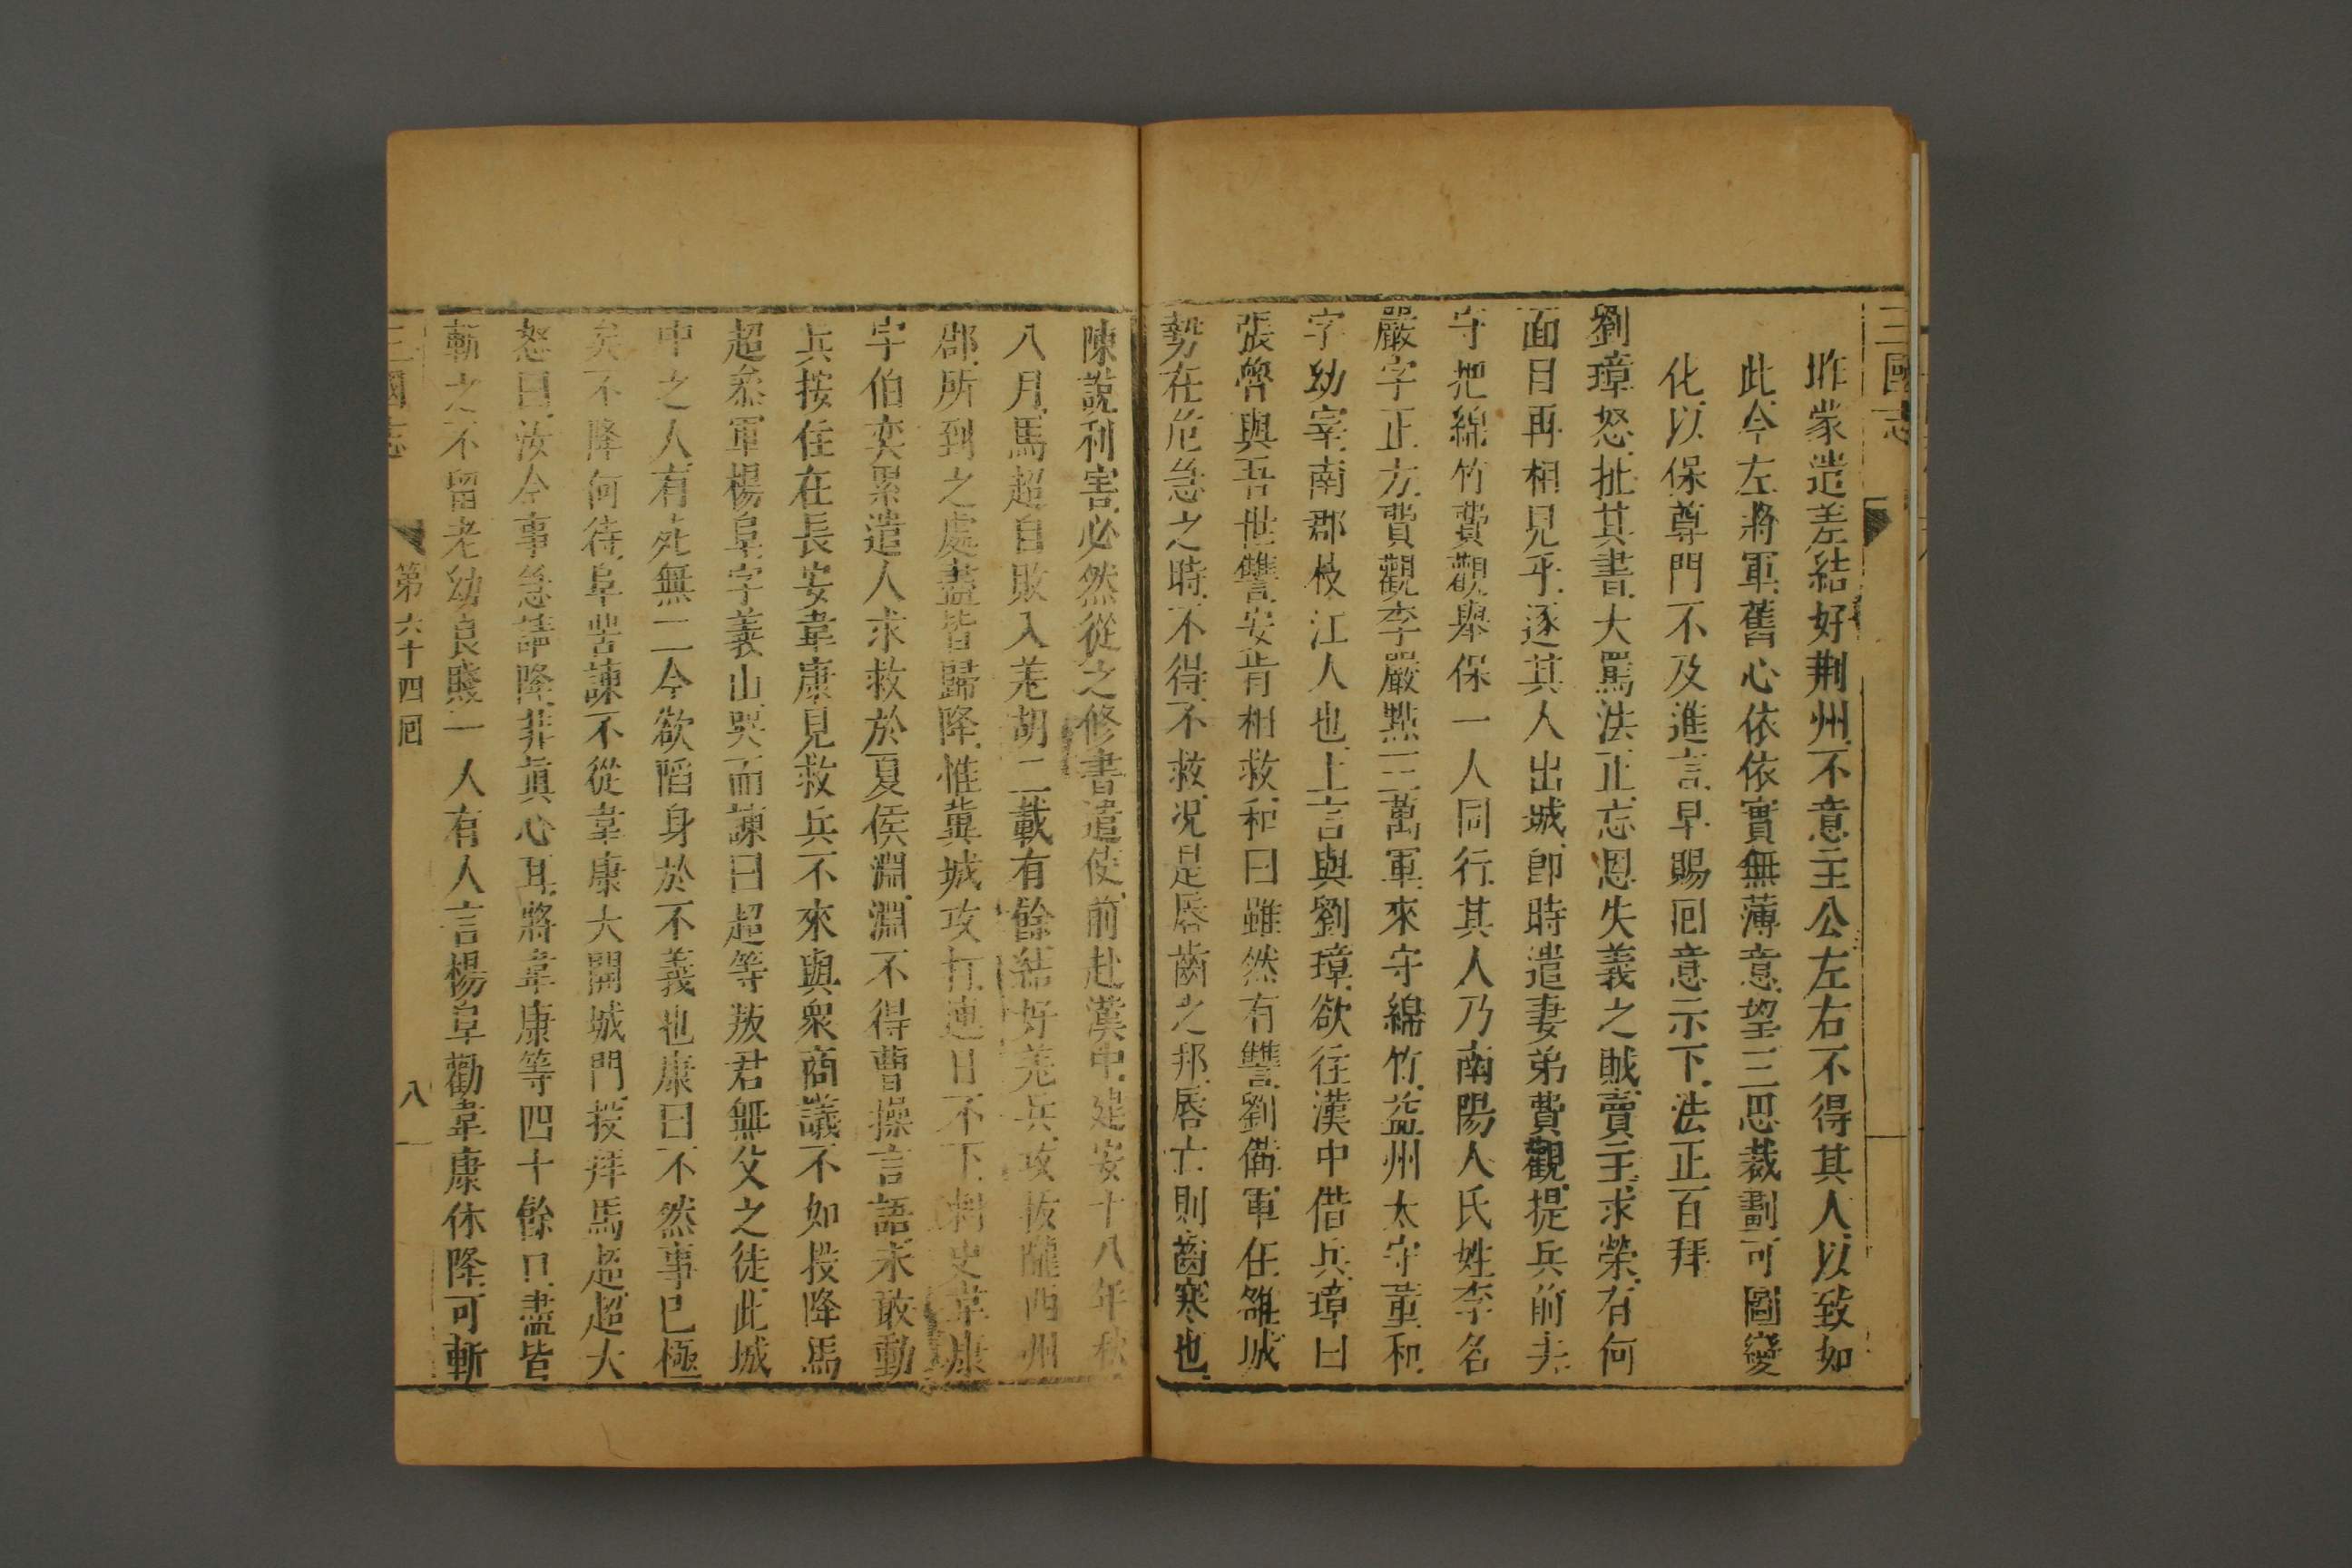 三國志
昨蒙遣差結好荆州不意主公左右不得其人以致如
此今左將軍舊心依依實無薄意望三思裁劃可圖變
化以保尊門不及進言早賜囘意示下法正百拜
劉璋怒扯其書大罵法正忘恩失義之賊賣主求榮有何
面目再相見乎逐其人出城卽時遣妻弟費觀提兵前去
守把綿竹費觀舉保一人同行其人乃南陽人氏姓李名
嚴字正方費觀李嚴點三萬軍來守綿竹益州太守董和
字幼宰南郡枝江人也上言與劉璋欲往漢中借兵璋曰
張魯與吾世讐安肯相救和曰雖然有讐劉備軍在雒城
勢在危急之時不得不救况是唇齒之邦唇亡則齒寒也
陳說利害必然從之修書遣使前赴漢中建安十八年秋
八月馬超自敗入羌胡二載有餘結好羌兵攻拔隴西州
郡所到之處盡皆歸降惟冀城攻打連日不下刺史韋康
字伯奕累遣人求救於夏侯淵淵不得曹操言語未敢動
兵按住在長安韋康見救兵不來與衆商議不如投降馬
超叅軍楊阜字義山哭而諫曰超等叛君無父之徒此城
中之人有死無二今欲陷身於不義也康曰不然事已極
矣不降何待阜苦諫不從韋康大開城門投拜馬超超大
怒曰汝今事急請降非眞心耳將韋康等四十餘口盡皆
斬之不留老幼良賤一人有人言楊阜勸韋康休降可斬
三國志 第六十四囘 八